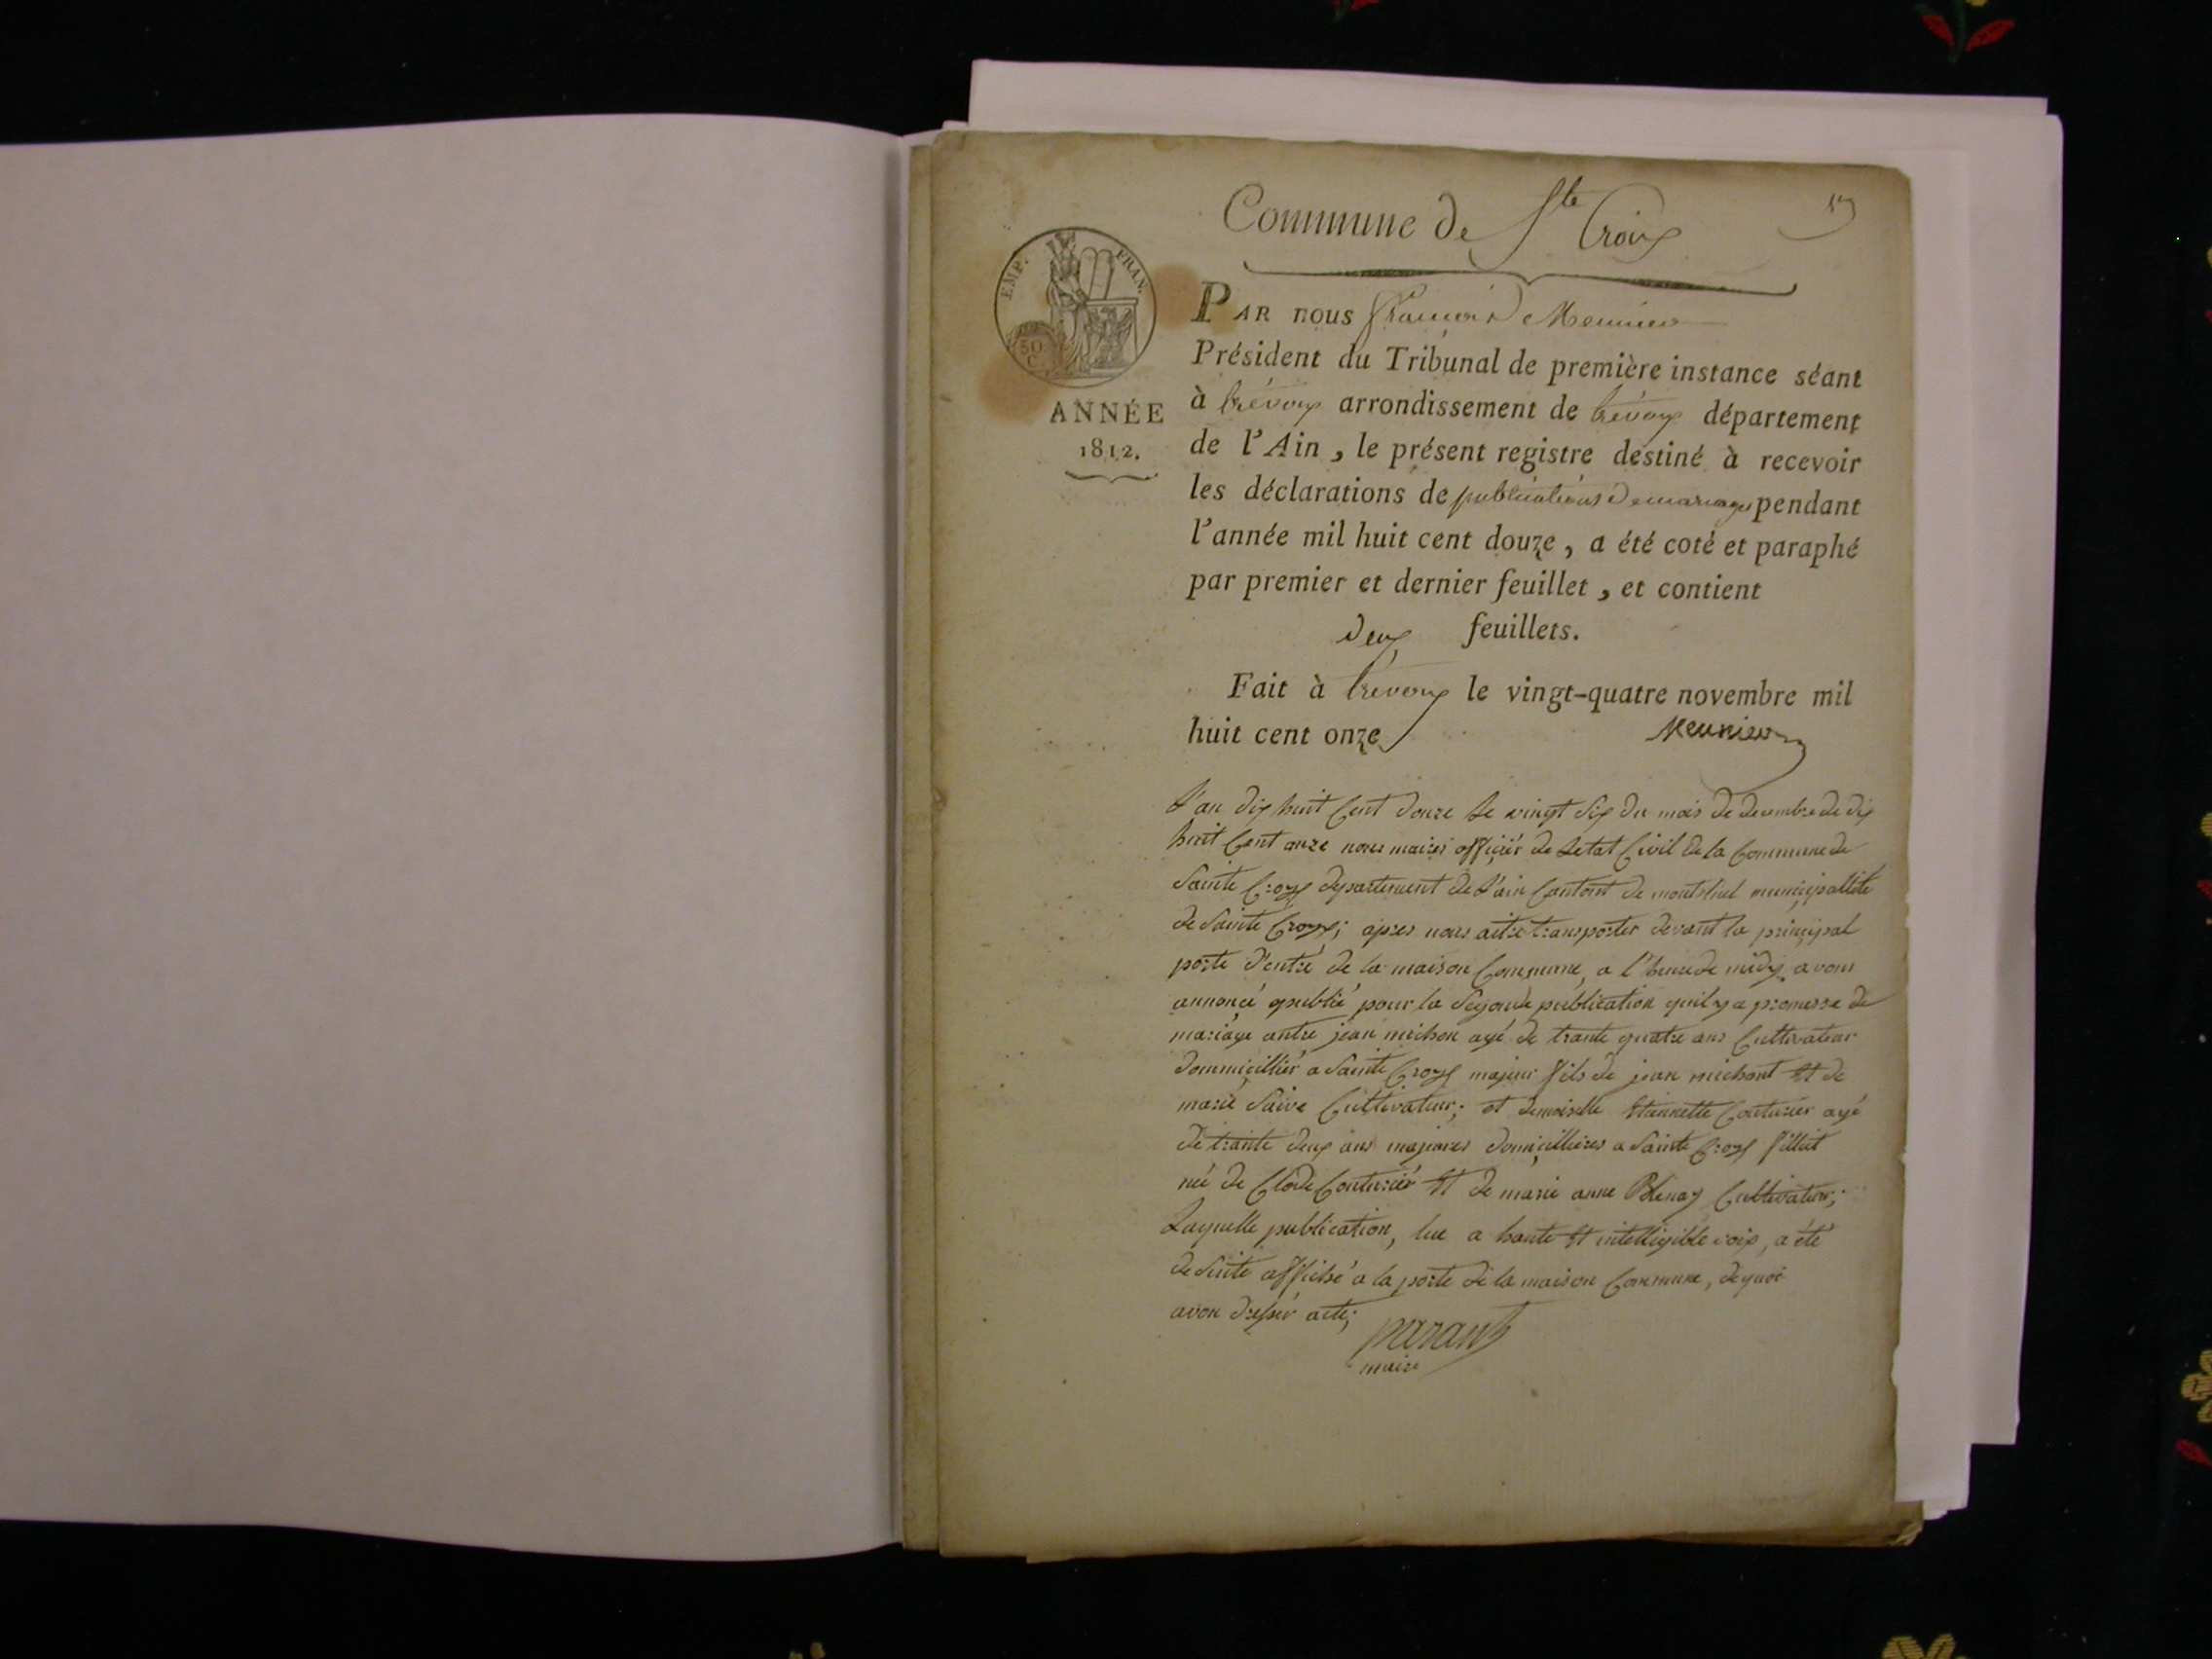 Commune de Ste Croix
EMP. FRAN.
50 C.
ANNÉE
1812.
PAR nous François Meunier
Président du Tribunal de première instance séant
à trévoux arrondissement de trévoux département
de l'Ain, le présent registre destiné à recevoir
les déclarations de publications de mariages pendant
l'année mil huit cent douze, a été coté et paraphé
par premier et dernier feuillet, et contient
deux feuillets.
Fait à trévoux le vingt-quatre novembre mil
huit cent onze
Meunier
L'an dix huit Cent douze Le vingt six du mois de decembre de dix
huit Cent onze nous maire officier de Letat Civil de la Commune de
Sainte Croix departement de L'ain Canton de montluel municipallité
de Sainte Croix; apres nous aitre transporter devant la principal
porte d'entré de la maison Commune, a l'heure de midy avons
annoncé publié pour la Segonde publication quil y a promesse de
mariage antre jean michon agé de trante quatre ans Cultivateur
dommicillier a Sainte Croix majeur fils de jean michont Et de
marie Saive Cultivateur; et demoiselle Etiennette Couturier agé
de trante deux ans majeures domicillieres a Sainte Croix fille
née de Clode Couturier Et de marie anne Cultivateur;
Laquelle publication, lue a haute Et intelligible voix, a été
de Suite affiché a la porte de la maison Commune, de quoi
avon dresser acte;
parant
maire